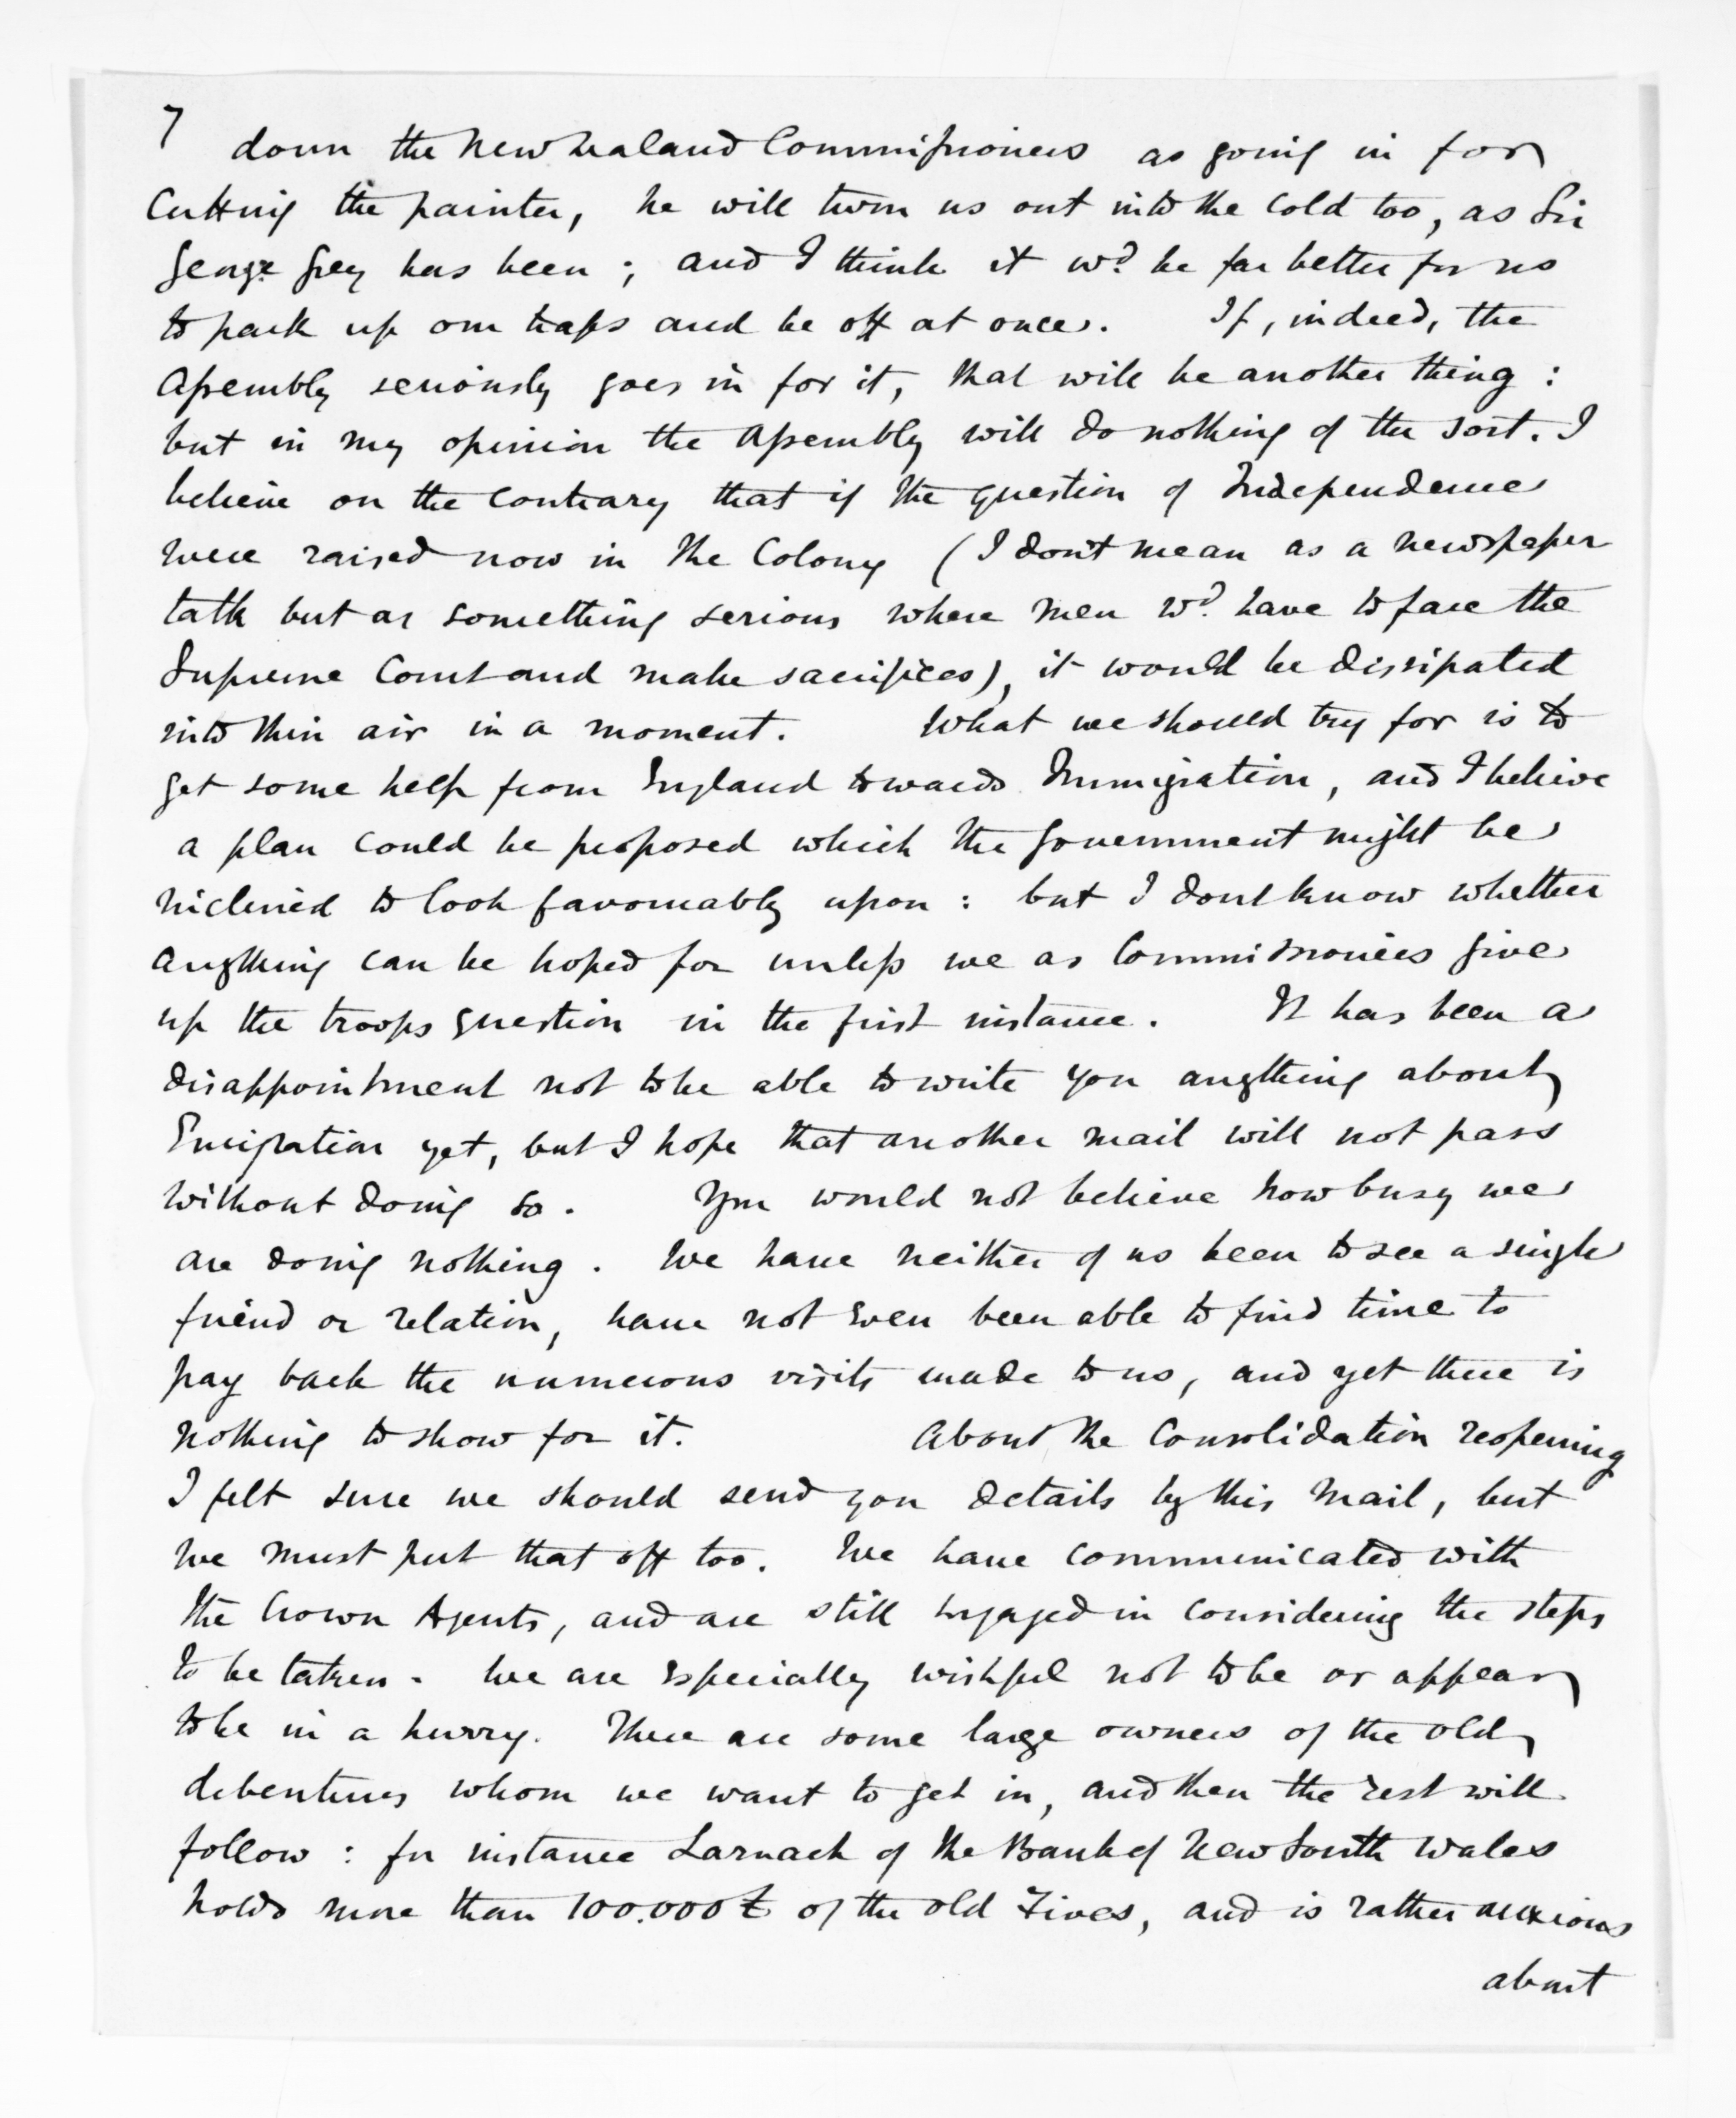 7
down the New Zealand Commissioners as going in for
cutting the painter, he will turn us out into the cold too, as Sir
George Grey has been; and I think it wd. be far better for us
to pack up our traps and be off at once. If, indeed, the
Assembly seriously goes in for it, that will be another thing:
but in my opinion the Assembly will do nothing of the sort. I
believe on the contrary that if the question of Independence
were raised now in the Colony (I don't mean as a newspaper
talk but as something serious where men wd. have to face the
Supreme Court and make sacrifices), it would be dissipated
into thin air in a moment. What we should try for is to
get some help from England towards Immigration, and I believe
a plan could be proposed which the Government might be
inclined to look favourably upon: but I dont know whether
anything can be hoped for unless we as Commissioners give
up the troops question in the first instance. It has been a
disappointment not to be able to write you anything about
Emigration yet, but I hope that another mail will not pass
without doing so. You would not believe how busy we
are doing nothing. We have neither of us been to see a single
friend or relation, have not even been able to find time to
pay back the numerous visits made to us, and yet there is
nothing to show for it. About the Consolidation reopening
I felt sure we should send you details by this mail, but
we must put that off too. We have communicated with
the Crown Agents, and are still engaged in considering the steps
to be taken. We are especially wishful not to be or appear
to be in a hurry. There are some large owners of the old
debentures whom we want to get in, and then the rest will
follow: for instance Larnach of the Bank of New South Wales
holds more than 100.000£ of the old Fives, and is rather anxious
about